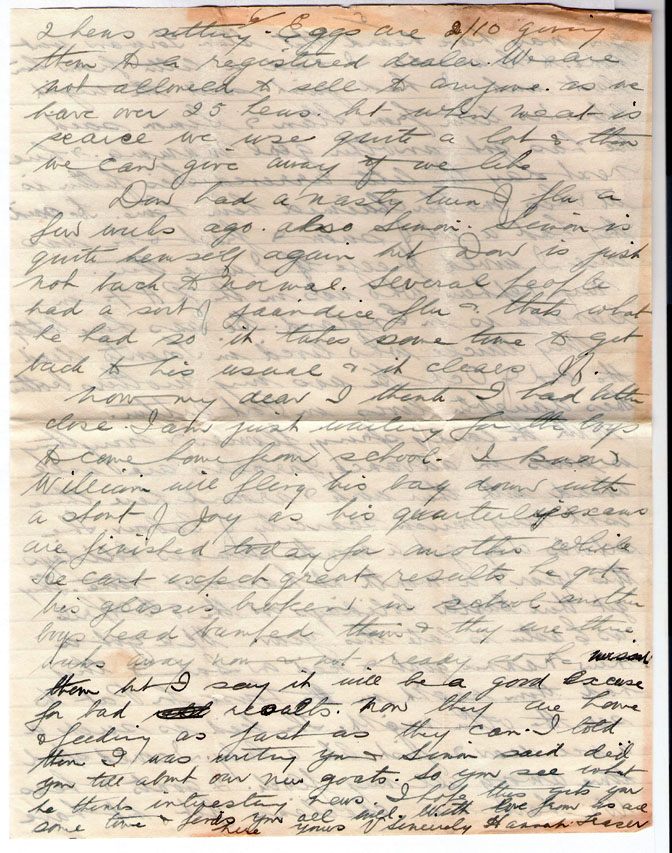 2 hens sitting. Eggs are 2/10 giving
them to a registered dealer. We are
not allowed to sell to anyone. as we
have over 25 hens. but when meat is
scarce we use quite a lot & then
we can give away if we like
Dow had a nasty turn of flu a
few weeks ago. also Simon. Simon is
quite himself again but Dow is just
not back to normal. Several people
had a sort of jaundice flu & thats what
he had so it takes some time to get
back to his usual & it clears
Now my dear I think I had better
close. I am just waiting for the boys
to come home from school. I know
William will fling his bag down with
a shout of Joy as his quarterly exams
are finished today for another while
he cant expect great results he got
his glasses broken in school another
boys head bumped them & they are three
weeks away now & not ready so he missed
them but I say it will be a good excuse
for bad results. Now they are home
& feeding as fast as they can. I told
them I was writing you & Simon said did
you tell about our new goats. So you see what
he thinks interesting news. I hope this gets you
some time & finds you all well. With love from us all
here yours Sincerely Hannah Fraser